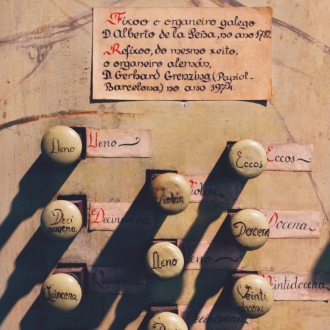 Fixoo o organeiro galego
D. Alberto de la Peña, no ano 1782.
Refixoo, do mesmo xeito,
o organeiro alemán,
D. Gerhard Grenzing (Papiol-
Barcelona) no ano 1974.
Lleno
Lleno
Eccos
Eccos
Violón
Violón
Deci
novena
Decinovena
Docena
Docena
Lleno
Quincena
Quincena
Vinti
docena
Vintidocena